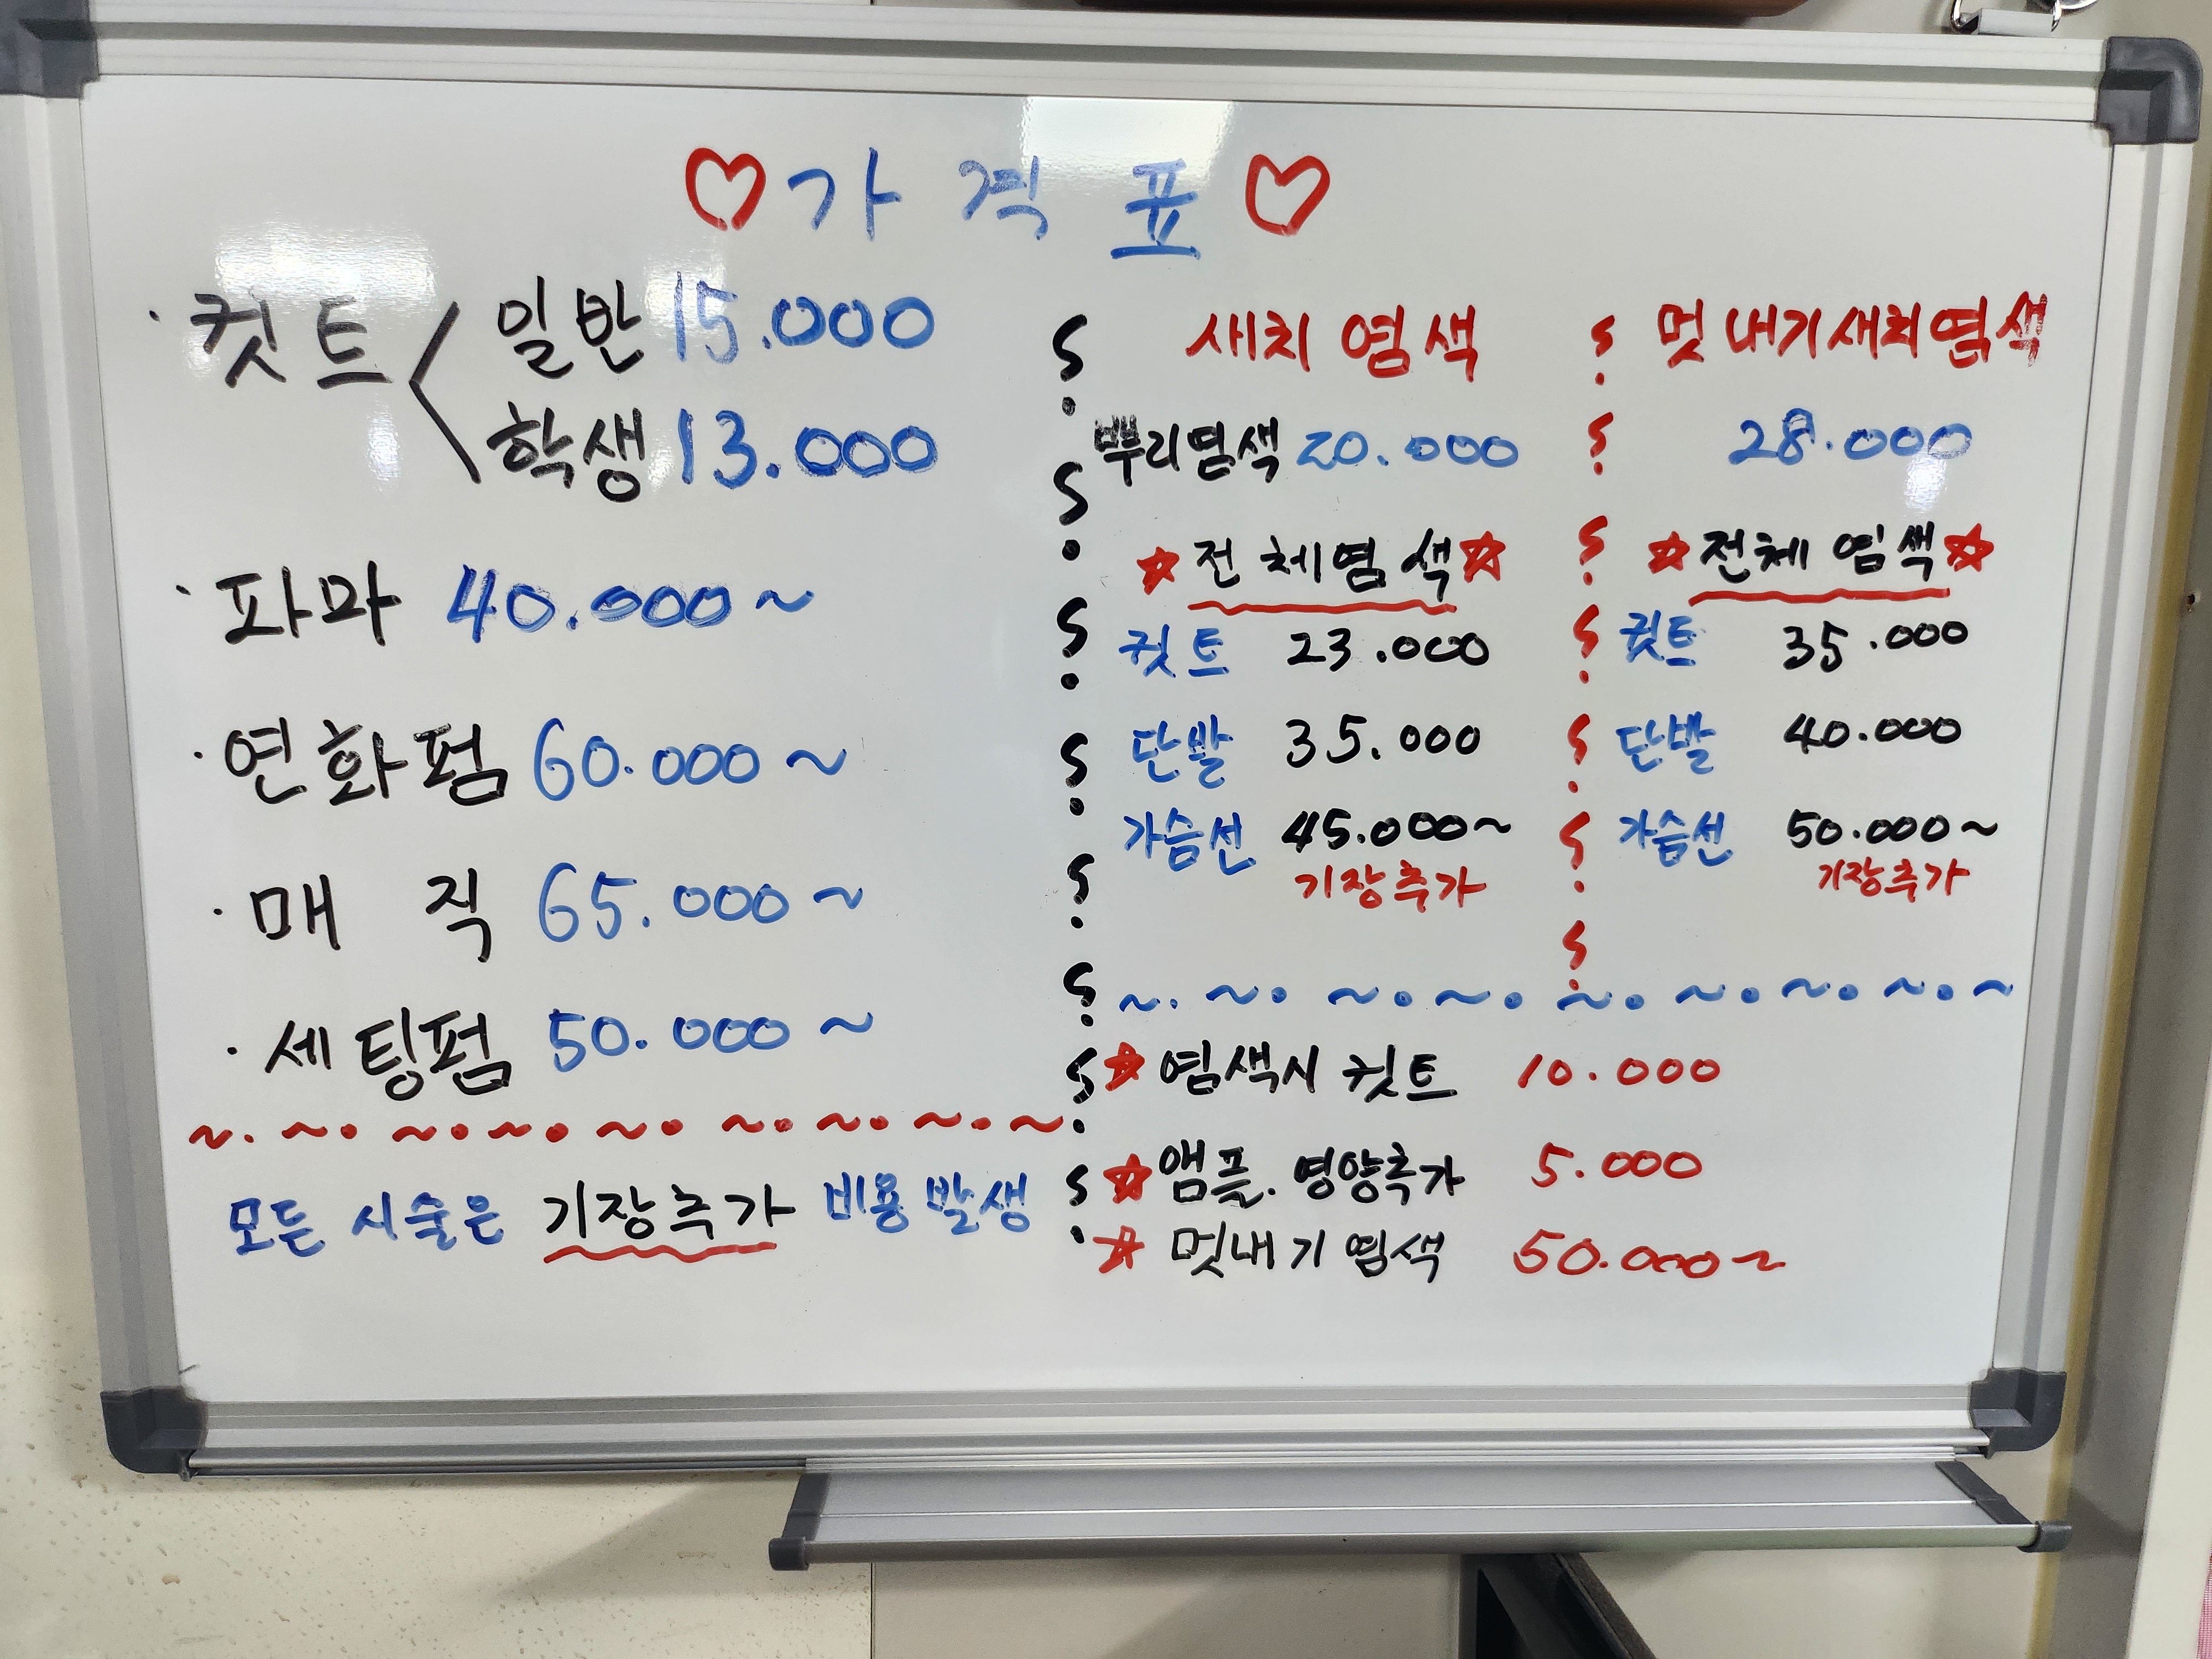 ♡가격표♡
·컷트 < 일반 15.000
학생 13.000
·파마 40.000~
·연화펌 60.000~
·매직 65.000~
·세팅펌 50.000~
모든 시술은 기장추가 비용발생
새치염색
뿌리염색 20.000
☆전체염색☆
컷트 23.000
단발 35.000
가슴선 45.000~
기장추가
멋내기새치염색
28.000
☆전체염색☆
컷트 35.000
단발 40.000
가슴선 50.000~
기장추가
☆염색시 컷트 10.000
☆앰플.영양축가 5.000
☆멋내기염색 50.000~